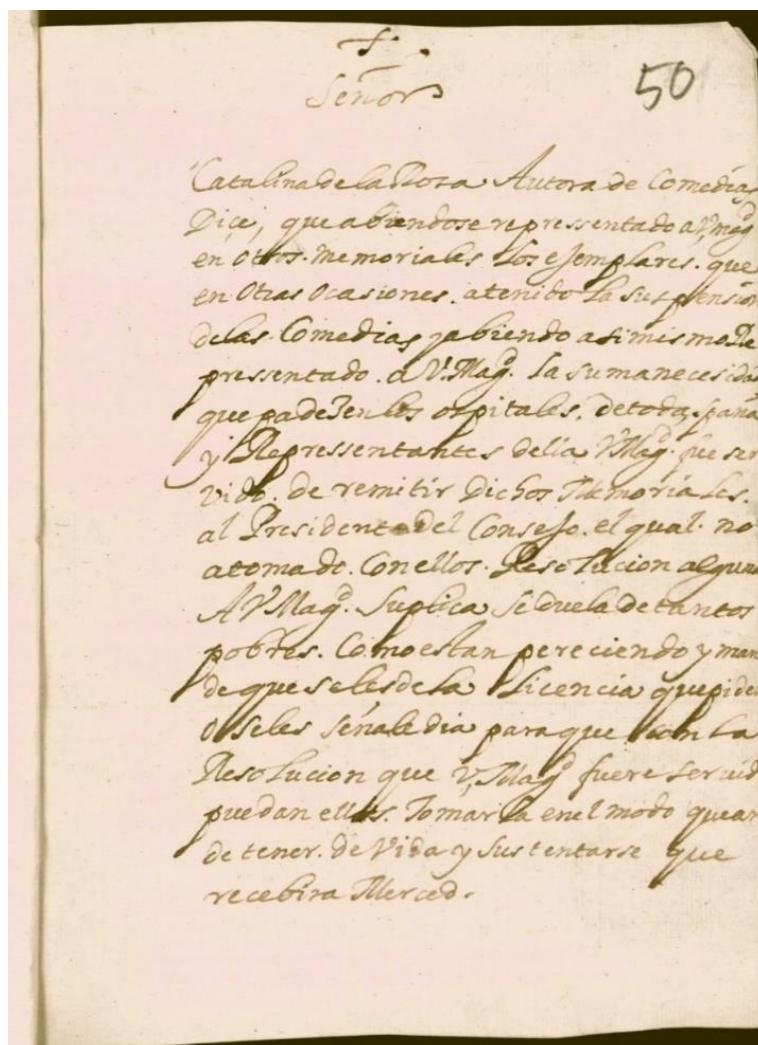 50
Señor
Catalina de la Rosa Autora de Comedias
Dice, que abiendose repressentado a V. Magd
en otros. memoriales los ejemplares. que
en Otras Ocasiones. atenido la suspension
de las. Comedias y abiendo asimismo Re
pressentado. a V. Magd. la suma necesidad
que padezen los ospitales. de toda españa
y Repressentantes della V. Magd. fue ser
vido. de remitir Dichos Memoriales.
al Presidente del Consejo. el qual. no
a tomado. Con ellos. Resolucion alguna
A V Magd. Suplica Se duela de tantos
pobres. Como estan pereciendo y man
de que se les de la Licencia que piden
O se les señale dia para que con la
Resolucion que V. Magd fuere servido
puedan ellos. Tomar la en el modo que an
de tener. de Vida y Sustentarse que
recebira Merced.